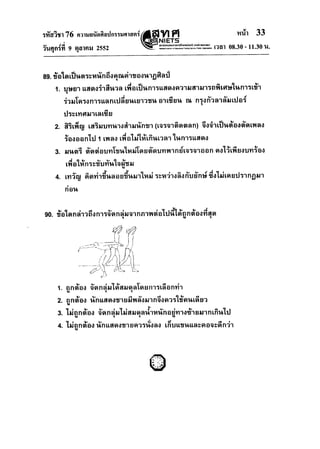 รหัสวิชา 76 ความถนัดศิลปกรรมศาสตร์ สทศ NIETS หน้า 33
วันศุกร์ที่ 9 ตุลาคม 2552 เวลา 08.30 - 11.30 น.
89. ข้อใดเป็นตระหนักถึงคุณค่าของนาฏศิลป์
1. บุษยา แสดงรำสีนวล เพื่อเป็นการแสดงความสามารถพิเศษในการเข้า
ร่วมโครงการแลกเปลี่ยนเยาวชน อาเซียน ณ กรุงกัวลาลัมเปอร์
ประเทศมาเลเซีย
2. สิริเพ็ญ เสริมบทนางสำมนักขา (เจรจาติดตลก) จึงจำเป็นต้องตัดเพลง
ร้องออกไป 1 เพลง เพื่อไม่ให้เกินเวลา ในการแสดง
3. มนตรี ตัดต่อบทโขนใหม่โดยตัดบทพากย์เจรจาออก คงไว้เพียงบทร้อง
เพื่อให้กระชับทันใจผู้ชม
4. เทวัญ คิดท่าขึ้นลอยขึ้นมาใหม่ ระหว่างลิงกับยักษ์ ซึ่งไม่เคยปรากฏมา
ก่อน
90. ข้อใดกล่าวถึงการจัดกลุ่มจากภาพต่อไปนี้ได้ถูกต้องที่สุด
1. ถูกต้อง จัดกลุ่มได้สมดุลโดยการเลือกท่า
2. ถูกต้อง นักแสดงชายมีพลังมากจึงควรใช้คนเดียว
3. ไม่ถูกต้อง จัดกลุ่มไม่สมดุลน้ำหนักอยู่ทางซ้ายมากเกินไป
4. ไม่ถูกต้อง นักแสดงชายควรนั่งลง เก็บแขนและคอจะดีกว่า